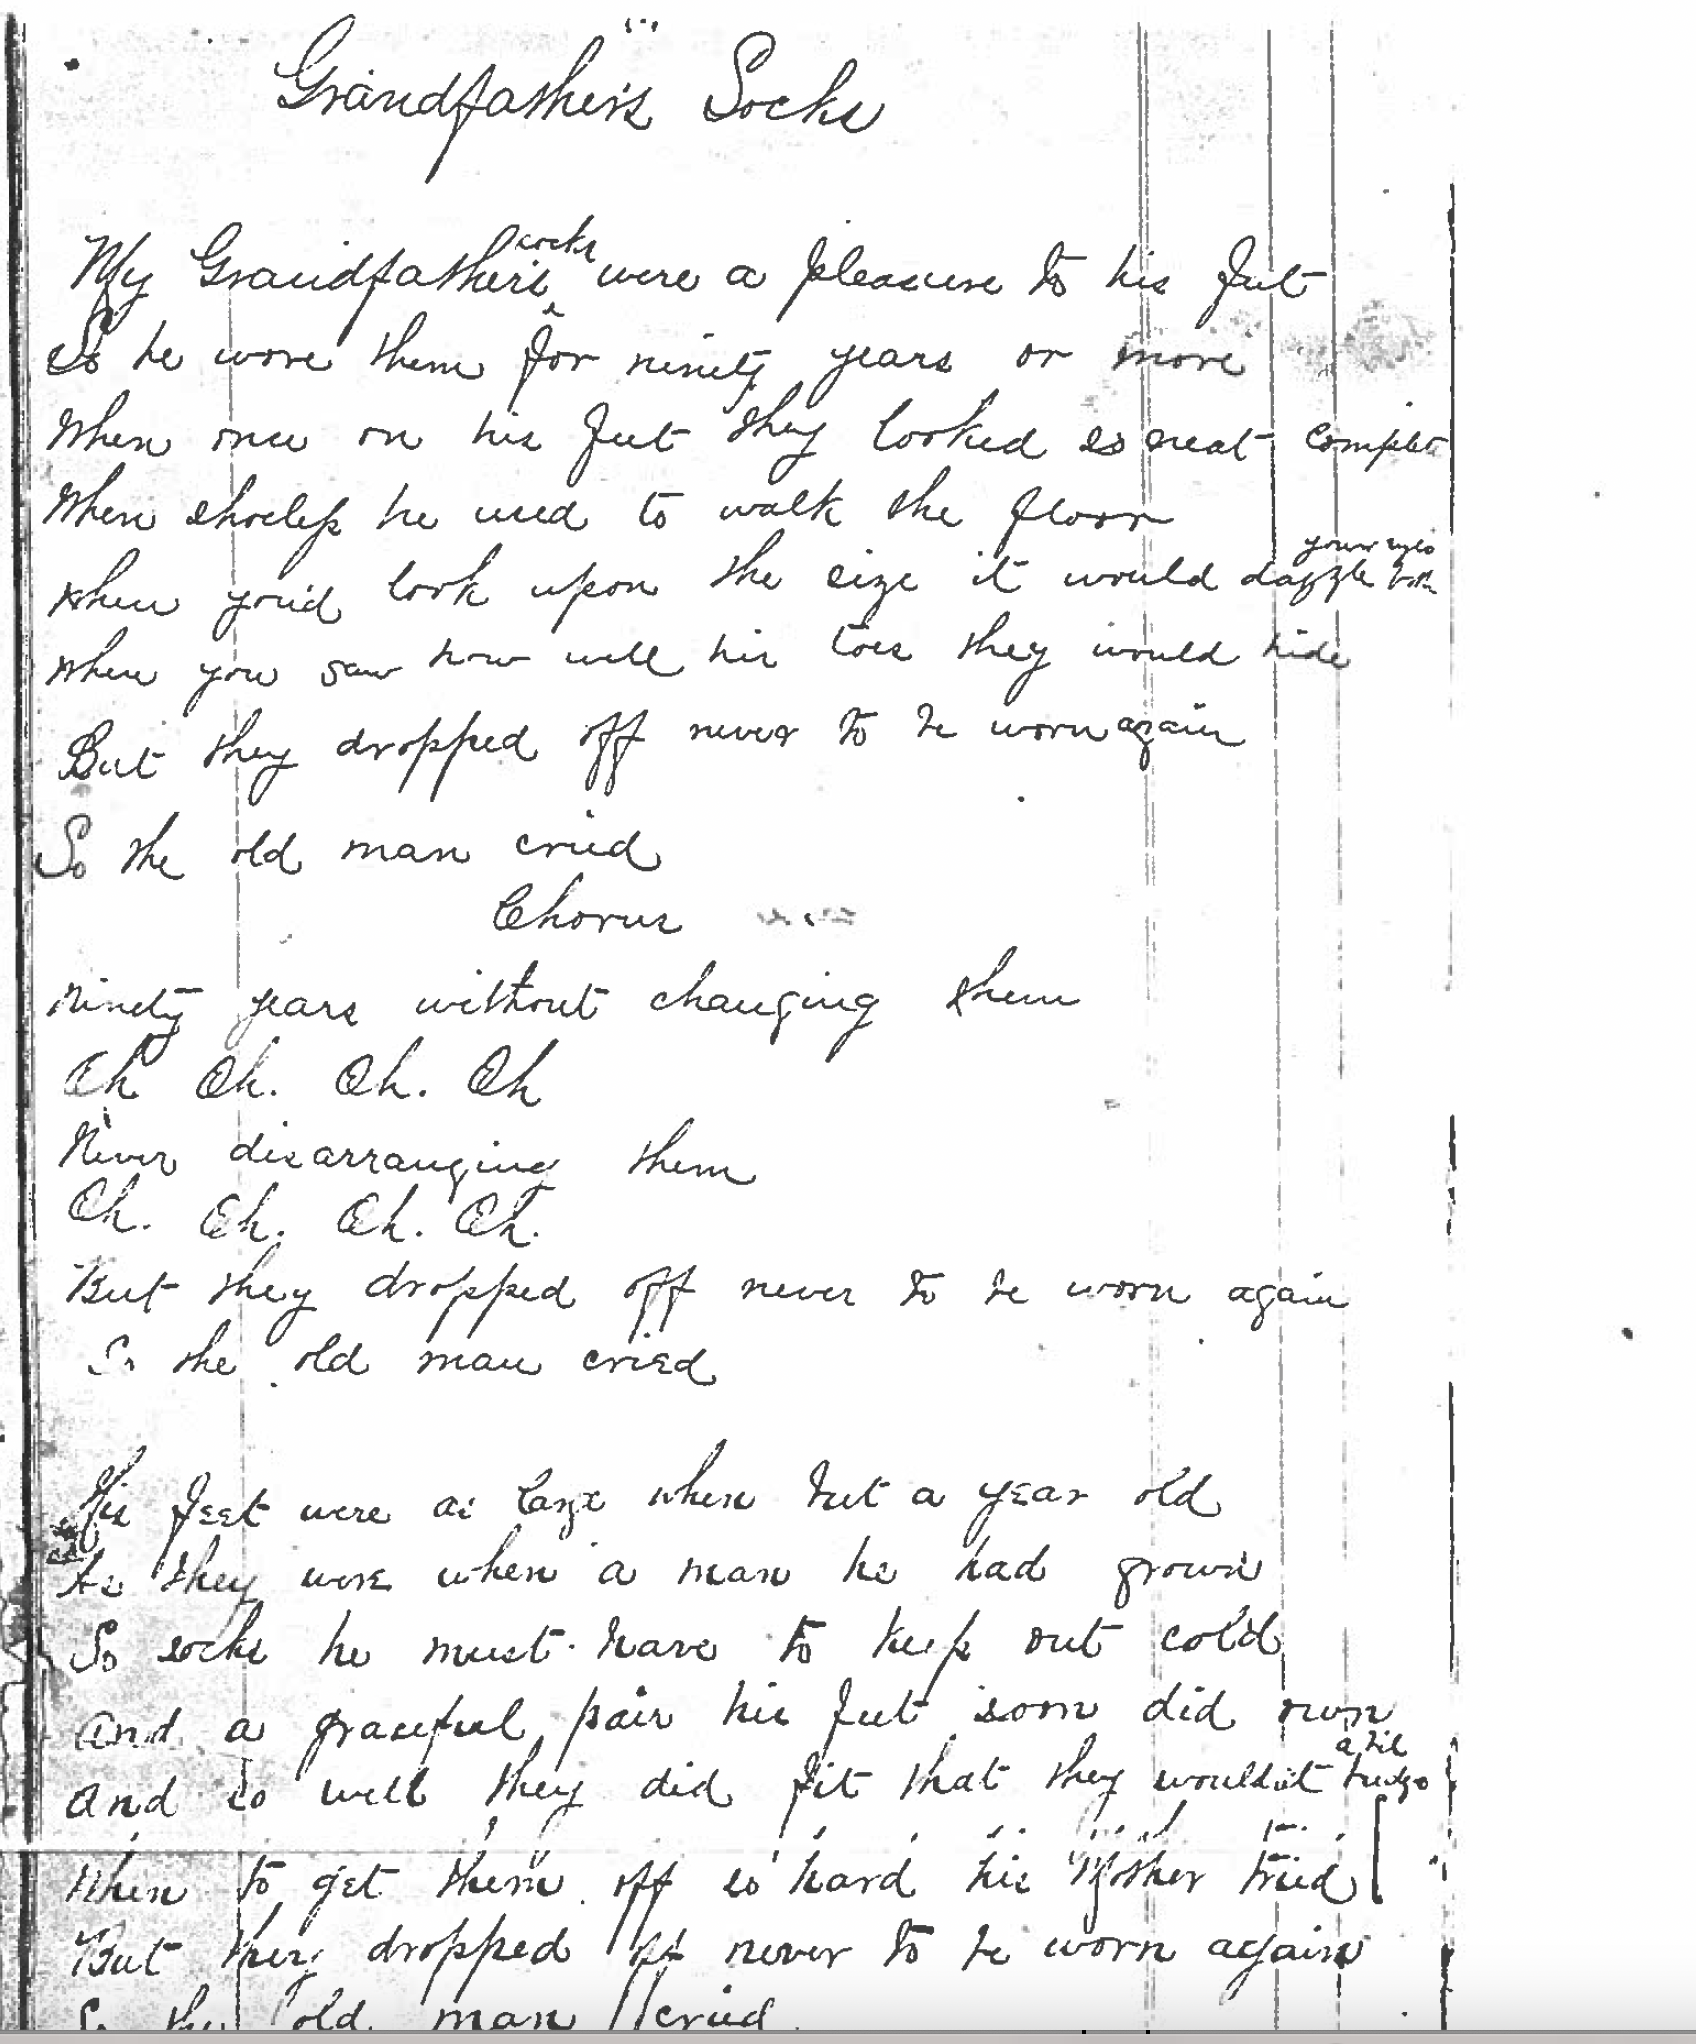 Grandfather's Socks
My Grandfather's socks were a pleasure to his feet
So he wore them for ninety years or more
When once on his feet they looked so neat complete
When shoeless he used to walk the floor
When you'd look upon the size it would dazzle both your eyes
When you saw how well his toes they would hide
But they dropped off never to be worn again
So the old man cried
Chorus
Ninety years without changing them
Oh Oh. Oh. Oh
Never disarranging them
Oh. Oh. Oh. Oh.
But they dropped off never to be worn again
So the old man cried
His feet were as large when but a year old
As they were when a man he had grown
So socks he must have to keep out cold
And a graceful pair his feet soon did own
And so well they did fit that they wouldn't budge a bit
When to get them off so hard his Mother tried
But they dropped off never to be worn again
So the old man cried